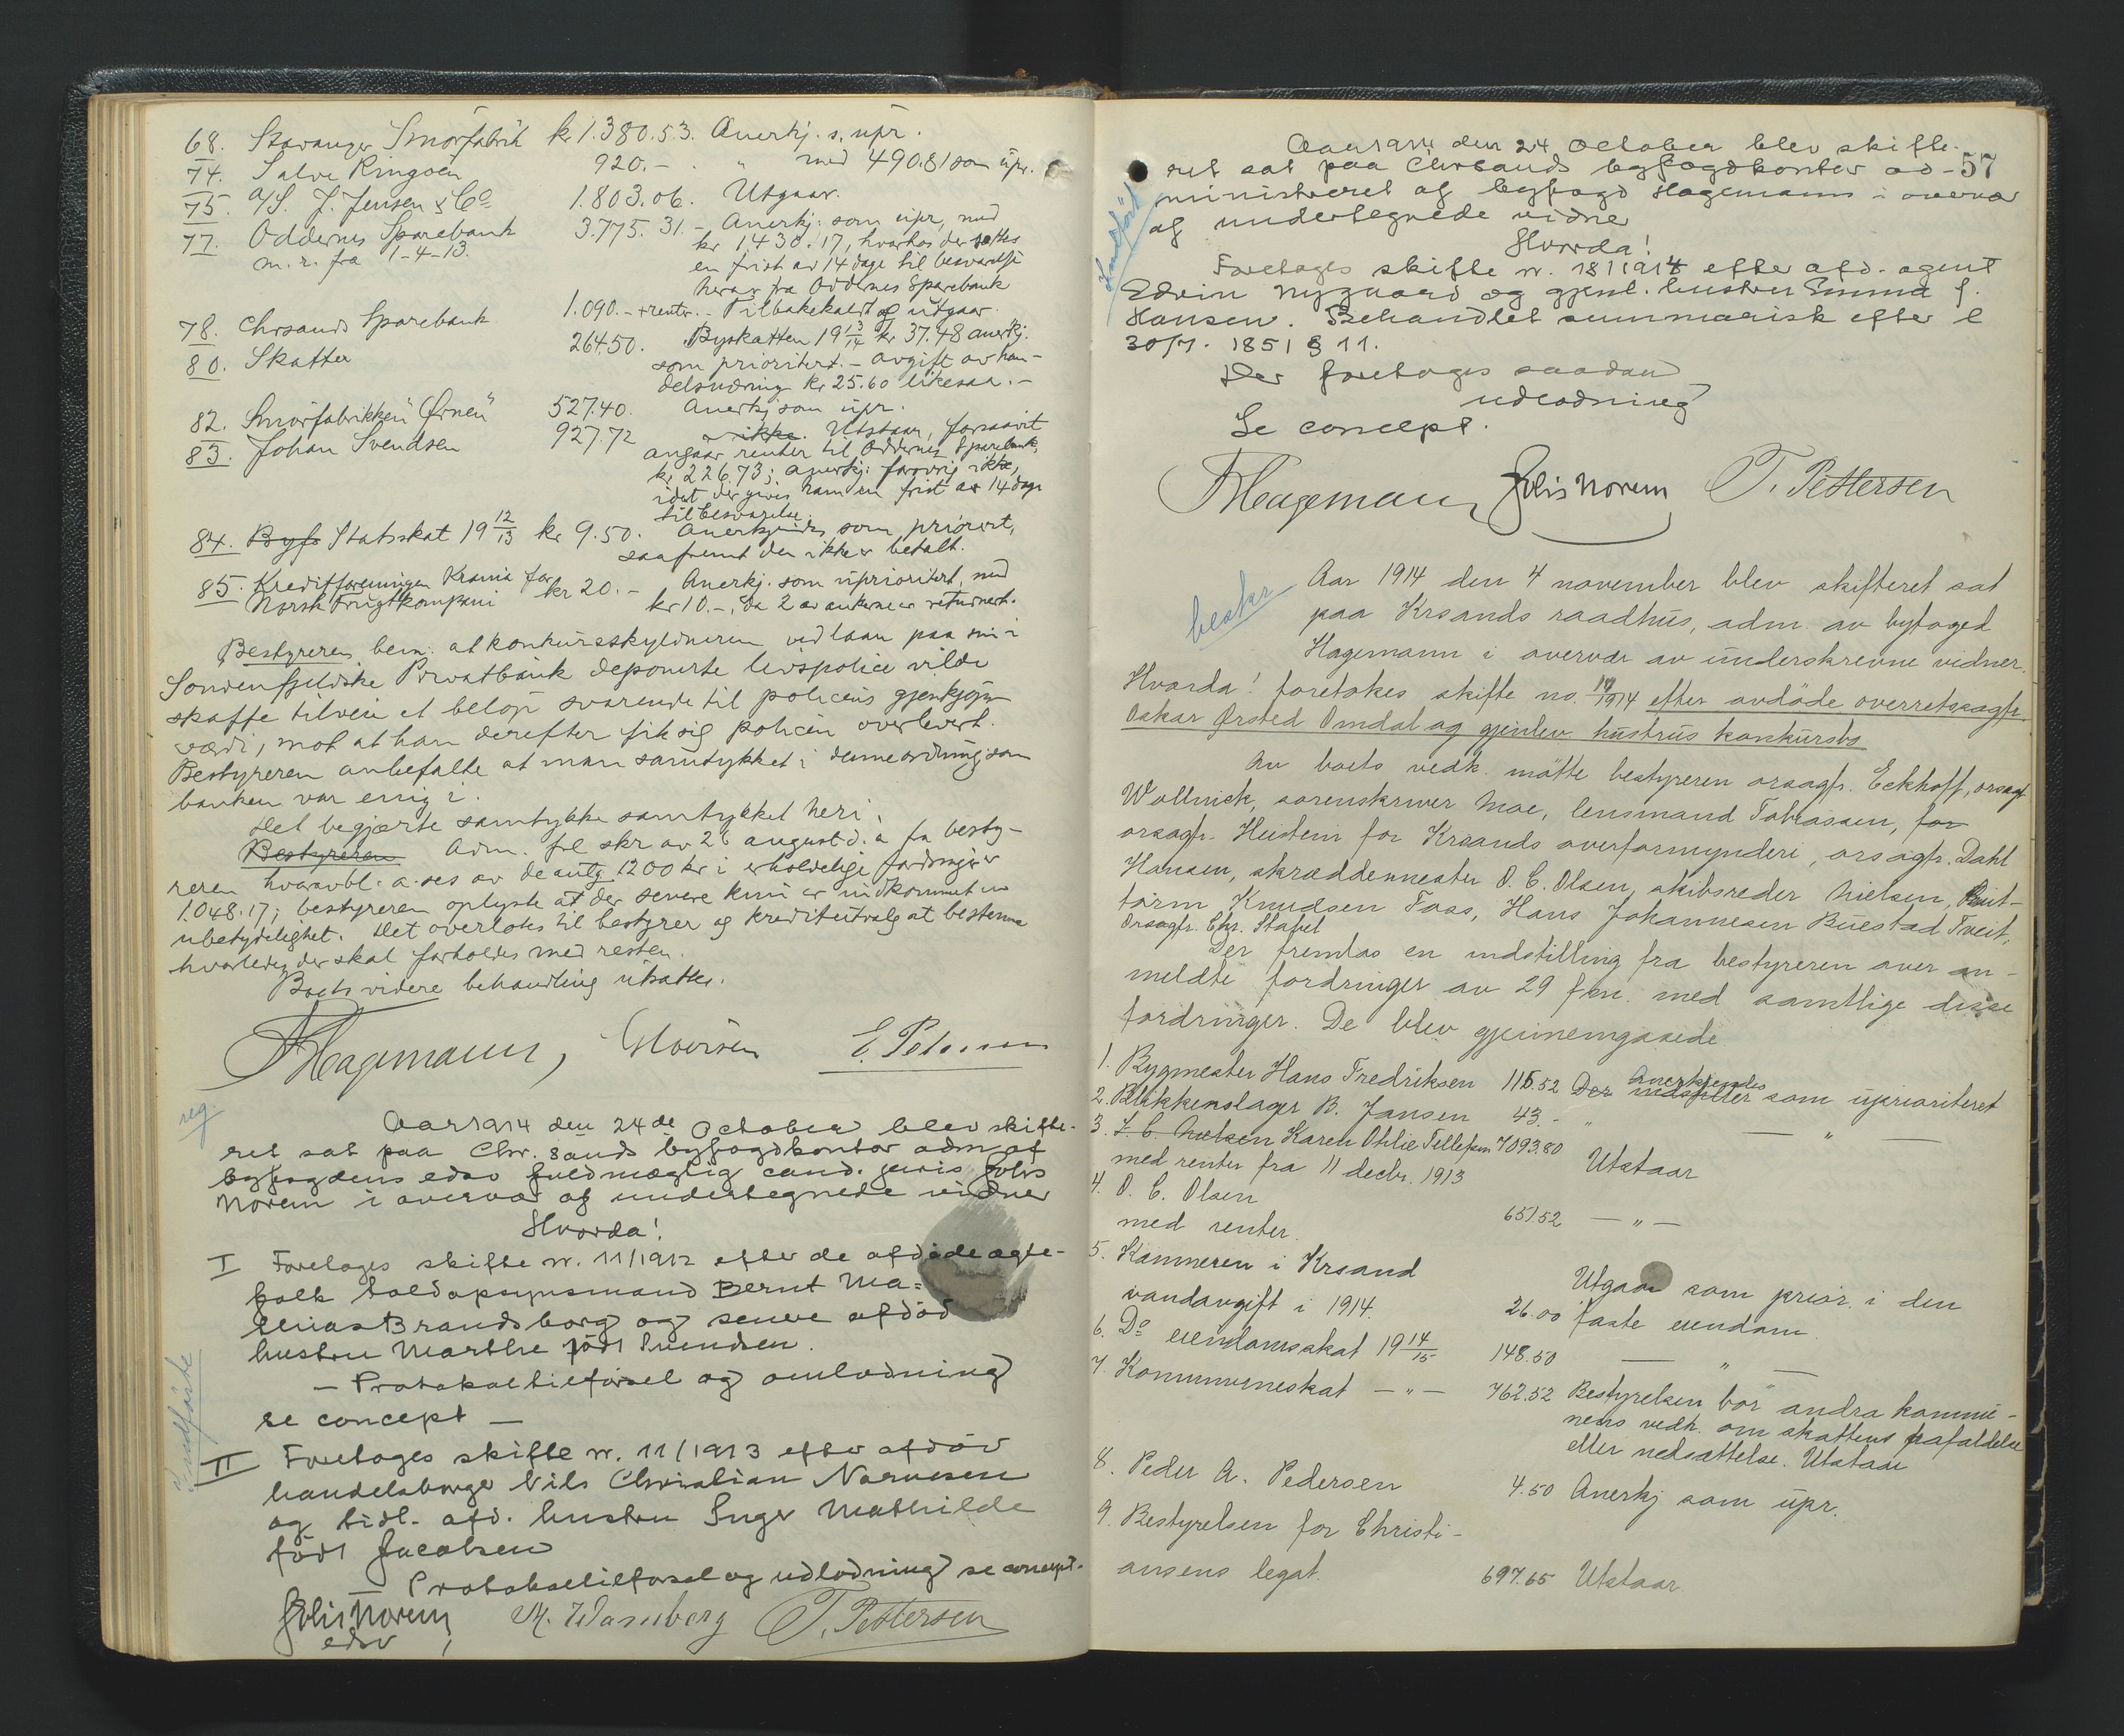 68. Stavanger Smörfabrik kr 1.380.53. Anerkj. s. upr.
74. Salve Ringoen 920.- " med 490.81 som upr.
75. A/S. J. Jensen & Co 1.803.06. Utgaar.
77. Oddernes Sparebank 3.775.31. - Anerkj. som upr, med
m. r. fra 1-4-13. kr 1430.17, hvorhos der sættes
en frist av 14 dage til besvarelse
herav fra Oddernes Sparebank
78. Chrsands Sparebank 1.090.- + renter. - Tilbakekaldt og utgaar.
80. Skatter 264.50. Byskatten 19 13/14 kr 37.48 anerkj.
som prioritert. - avgift av han-
delsnæring kr 25.60 likesaa. -
82. Smörfabrikken "Ørnen" 527.40. Anerkj som upr.
83. Johan Svendsen 927.72 ikke. Utstaar, forsaavit
angaar renter til Oddernes Sparebank,
kr 226.73; anerkj. forövrig ikke,
idet der gives ham en frist av 14 dage
til besvarelse.
84. Byfo Statsskat 19 12/13 kr 9.50. Anerkjendes som priorert,
saafremt den ikke er betalt.
85. Kreditforeningen Krania for kr 20.- Anerkj. som uprioritert, med
Norsk Frugtkompani kr 10.-, da 2 av ankerne er returnert.
Bestyreren bem. at konkursskyldneren ved laan paa sin i
Söndenfjeldske Privatbank deponerte livspolice vilde
skaffe tilveie et belöp svarende til policens gjenkjöps-
værdi, mot at han derefter fik sig policen overlevert.
Bestyreren anbefalte at man samtykket i denne ordning som
banken var enig i.
Det begjærte samtykke samtykket heri.
Bestyreren Adm. frl skr av 26 august d. a fra besty-
reren hvoravbl. a. ses av de antg 1200 kr i erholdelige fordringer er
1.048.17; bestyreren oplyste at der senere kun er indkommet en
ubetydelighet. Det overlotes til bestyrer og kreditutvalg at bestemme
hvorledes der skal forholdes med resten.
Boets videre behandling utsattes.
FHagemann, E. Petersen
reg.
Aar 1914 den 24de October blev skifte-
ret sat paa Chr.sands byfogdkontor adm af
byfogdens edsv fuldmægtig cand. juris Jolis
Norem i overvær af undertegnede vidner
Hvorda!
I Foretoges skifte nr. 11/1912 efter de afdöde ægte-
folk toldopsynsmand Bernt Ma-
thias Brandsborg og senere afdöd
hustru Marthe födt Svendsen.
- Protokoltilförsel og omlodning
se concept -
Indförte
II Foretoges skifte nr. 11/1913 efter afdöd
handelsborger Nils Christian Narvesen
og tidl. afd. hustru Inger Mathilde
födt Jacobsen
- Protokoltilförsel og udlodning se concept.
Jolis Norem M. Wamberg T. Pettersen
edsv
57
Indfört
Aar 1914 den 24 October blev skifte-
ret sat paa Chrsands byfogdkontor ad-
ministreret af byfogd Hagemann i overvær
af undertegnede vidner
Hvorda!
Foretoges skifte nr. 18/1914 efter afd. agent
Edvin Nygaard og gjenl. hustru Emma f.
Hansen. Behandlet summarisk efter l
30/7. 1851 § 11.
Der foretoges saadan
udlodning
Se concept.
FHagemann Jolis Norem T. Pettersen
beskr
Aar 1914 den 4 november blev skifteret sat
paa Krsands raadhus, adm. av byfoged
Hagemann i overvær av underskrevne vidner.
Hvorda! foretokes skifte no. 14/1914 efter avdöde overretssagfr.
Oskar Ørsted Omdal og gjenlev. hustrus konkursbo
Av boets vedk. mötte bestyreren orsagfr. Eckhoff, orsagf
Wollnick, sorenskriver Moe, lensmand Tobiassen, for
orsagfr. Heistein for Krsands overformynderi, orsagfr. Dahl
Hansen, skræddermester O. C. Olsen, skibsreder Nielsen, Reit-
törm Knudsen Foss, Hans Johannesen Buestad Tveit,
Orsagfr. Chr. Stabel
Der fremlas en indstilling fra bestyreren over an-
meldte fordringer av 29 f.m. med samtlige disse
fordringer. De blev gjennemgaaede.
1. Bygmester Hans Fredriksen 115.52 Der indstilles Anerkjendes som uprioriteret
2. Blikkenslager B. Jansen 43.- " — " —
3. J. C. Nielsen Karen Othilie Tellefsen 7093.80
med renter fra 11 decbr. 1913 Utstaar
4. O. C. Olsen
med renter. 651.52 — " —
5. Kæmneren i Krsand
vandavgift i 1914. 26.00 Utgaar som prior. i den
faste eiendom.
6. Do eiendomsskat 19 14/15 148.50 — " —
7. Kommuneskat — " — 762.52 Bestyrelsen bör andra kommu-
nens vedk. om skattens frafaldelse
eller nedsættelse. Utstaar
8. Peder A. Pedersen 4.50 Anerkj som upr.
9. Bestyrelsen for Christi-
ansens legat. 697.65 Utstaar